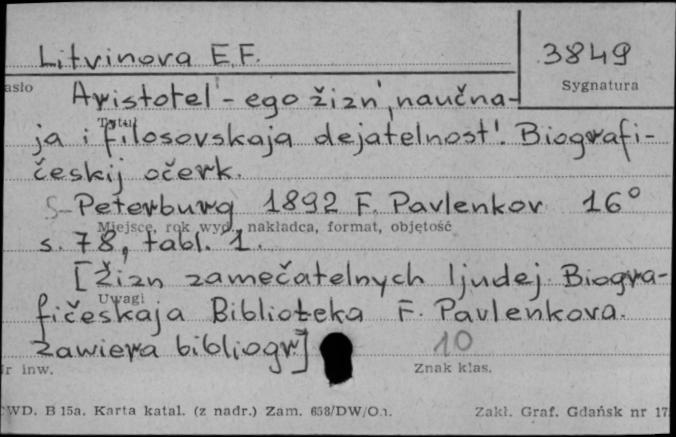 Litvinova E.F. 3849
asło Sygnatura
Aristotel' - ego žizn', naučna-
Tytuł
ja i filosovskaja dejatelnost'. Biografi-
českij očerk.
S-Peterburg 1892 F. Pavlenkov 16°
Miejsce, rok wyd., nakładca, format, objętość
s. 78, tabl. 1.
[Žizn zamečatelnych ljudej. Biogra-
Uwagi
fičeskaja Biblioteka F. Pavlenkova.
Zawiera bibliogr.] 10
r inw. Znak klas.
CWD. B 15a. Karta katal. (z nadr.) Zam. 658/DW/O.1. Zakł. Graf. Gdańsk nr 17